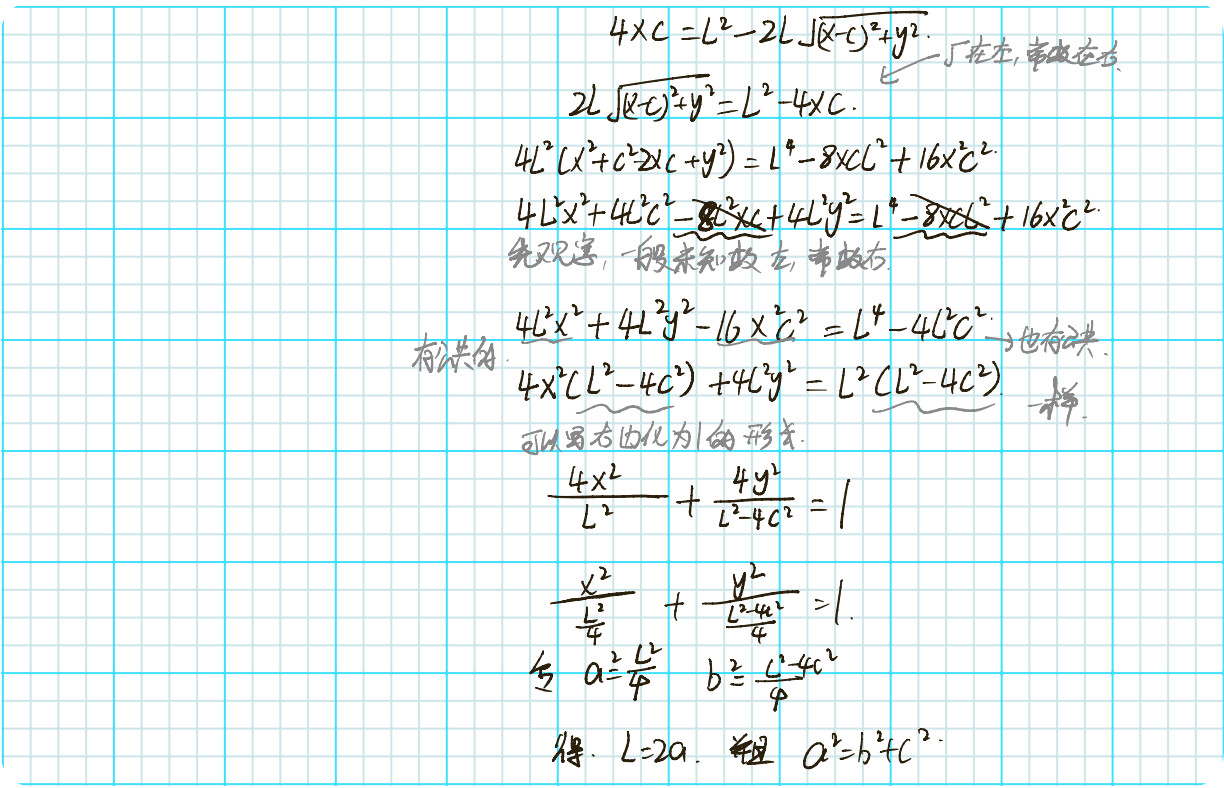 4xc = L² - 2L√((x-c)²+y²).
√在左,常数在右.
2L√((x-c)²+y²) = L² - 4xc.
4L²(x²+c²-2xc+y²) = L⁴ - 8xcL² + 16x²c².
4L²x² + 4L²c² - 8L²xc + 4L²y² = L⁴ - 8xcL² + 16x²c².
先观察,一般未知数左,常数右.
4L²x² + 4L²y² - 16x²c² = L⁴ - 4L²c². → 也有公共.
有公共的.
4x²(L²-4c²) + 4L²y² = L²(L²-4c²). 一样.
可以写右边化为1的形式.
4x²/L² + 4y²/(L²-4c²) = 1
x²/(L²/4) + y²/((L²-4c²)/4) = 1.
令 a² = L²/4 b² = (L²-4c²)/4
得. L=2a. 且 a²=b²+c².